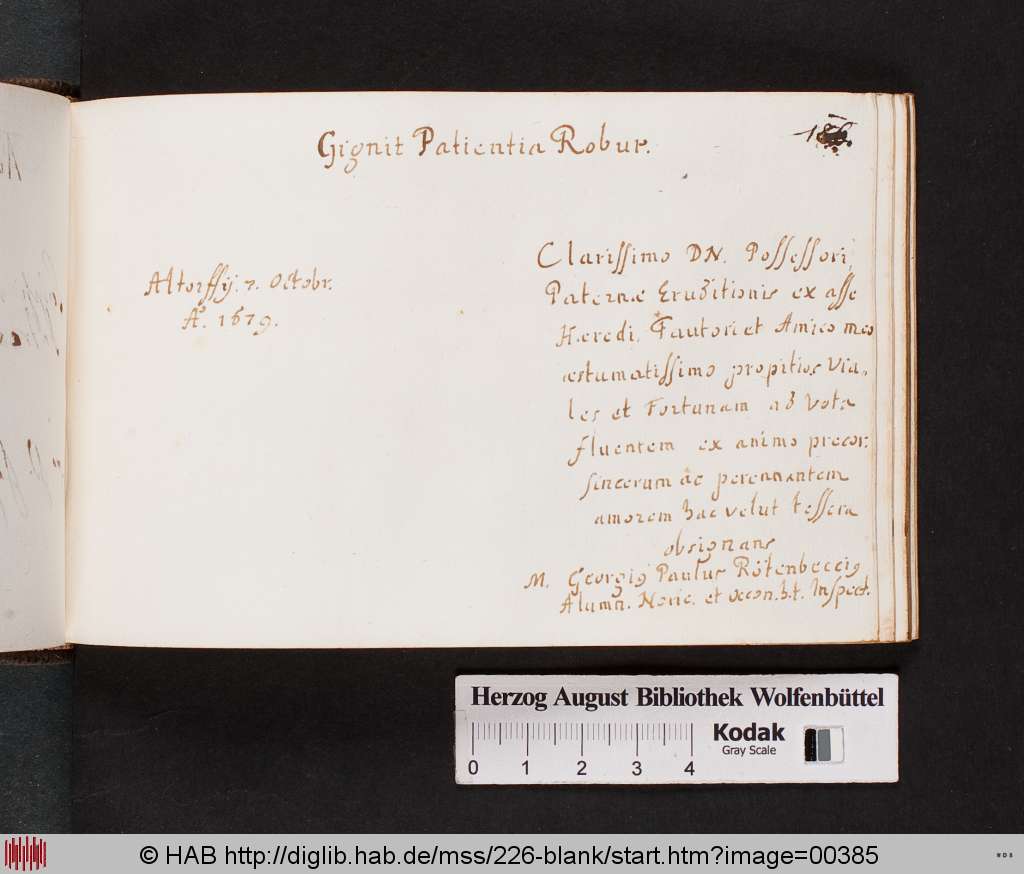 Gignit Patientia Robur.
186.
Altorffij. 7. Octobr.
Aº. 1679.
Clarissimo DN. Possessori,
Paternæ Eruditionis ex asse
Hæredi, Fautori et Amico meo
æstumatissimo propitios Via-
les et Fortunam ad vota
fluentem ex animo precor:
sincerum ac perennantem
amorem hac velut tessera
obsignans
M. Georgius Paulus Rötenbeccius
Alumn. Noric. et oecon. h.t. Inspect.
Herzog August Bibliothek Wolfenbüttel
Kodak
Gray Scale
0 1 2 3 4
© HAB http://diglib.hab.de/mss/226-blank/start.htm?image=00385
WDB